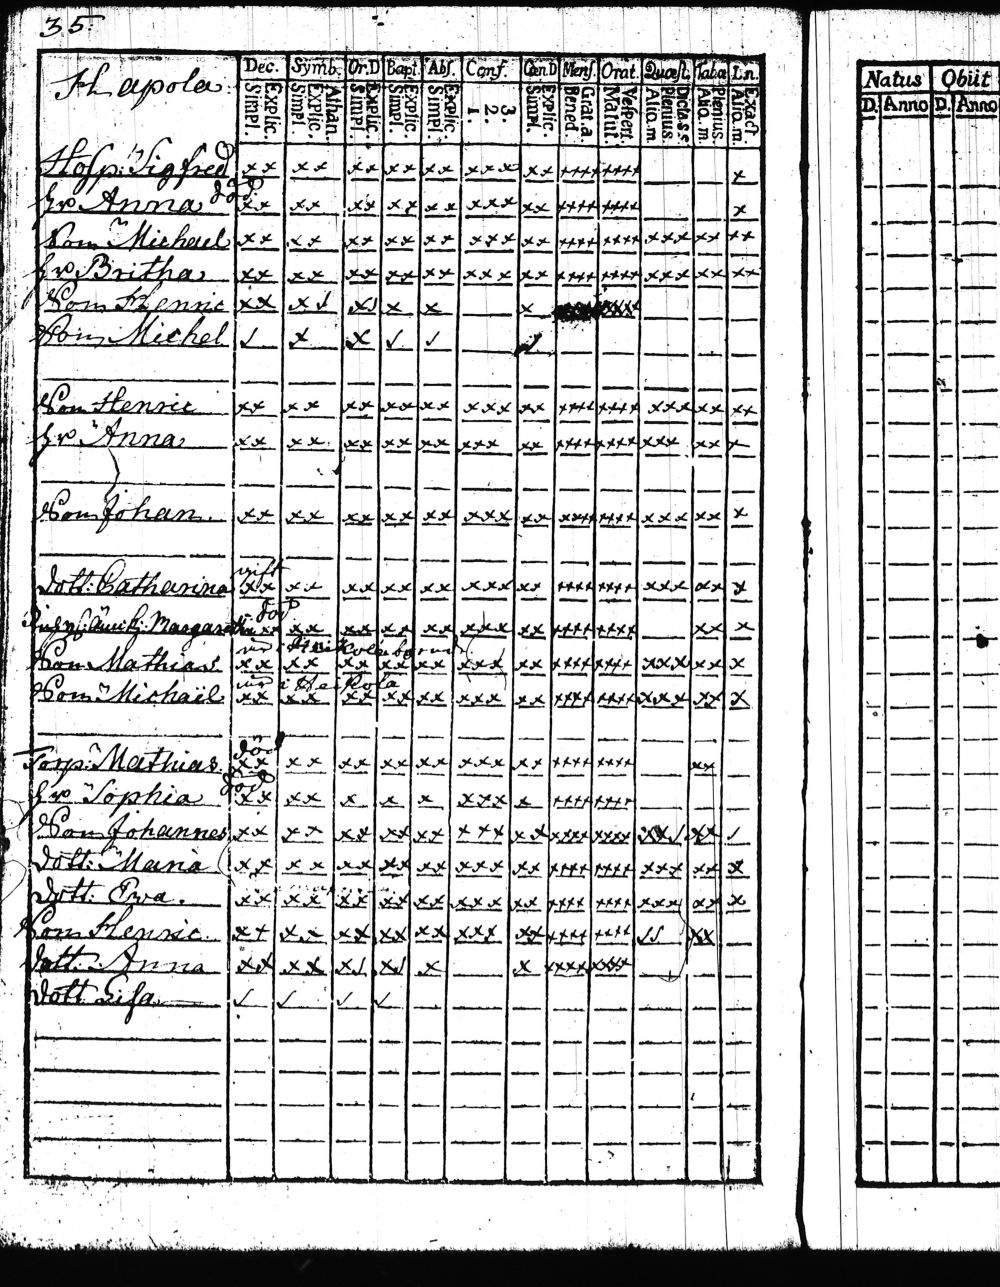 35.
Hapola
Dec. Symb. Or.D Bapt. Abs. Conf. Cœn.D Mens. Orat. Quæst. Taba Ln.
Explic. Simpl. Athan. Explic. Simpl. Explic. Simpl. Explic. Simpl. Explic. Simpl. 3. 2. 1. Explic. Simpl. Grat.a Bened. Vespert. Matut. Dictas.s. Plenius Aliq.m Plenius. Aliq.m Exact Aliq.m
Natus Obiit
D. Anno D. Anno
Hosp: Sigfred xx xx xx xx xx xxx xx xxxx xxxx x
död
hr Anna xx xx xx xx xx xxx xx xxxx xxxx x
Son Michael xx xx xx xx xx xxx xx xxxx xxxx xxx xx xx
hr Britha xx xx xx xx xx xxx xx xxxx xxxx xxx xx xx
Son Henric xx x√ x√ x x x xxxx
Son Michel √ x x √ √ √
Son Henric xx xx xx xx xx xxx xx xxxx xxxx xxx xx xx
hr Anna xx xx xx xx xx xxx xx xxxx xxxx xxx xx x
Son Johan xx xx xx xx xx xxx xx xxxx xxxx xxx xx x
gift
Dott: Catharina xx xx xx xx xx xxx xx xxxx xxxx xxx xx x
död
Margareta xx xx xx xx xx xxx xx xxxx xxxx xx x
Son Mathias xx xx xx xx xx xxx xx xxxx xxxx xxx xx x
i Hapola
Son Michaël xx xx xx xx xx xxx xx xxxx xxxx xxx xx x
död
Torp: Mathias xx xx xx xx xx xxx xx xxxx xxxx xx
död
hr Sophia xx xx x x x xxx x xxxx xxxx
Son Johannes xx xx xx xx xx xxx xx xxxx xxxx xx√ xx √
Dott: Maria xx xx xx xx xx xxx xx xxxx xxxx xxx xx x
Dott: Eva. xx xx xx xx xx xxx xx xxxx xxxx xxx xx x
Son Henric xx xx xx xx xx xxx xx xxxx xxxx √√ xx
Dott: Anna xx xx x√ x√ x x xxxx xxxx
Dott Lisa √ √ √ √